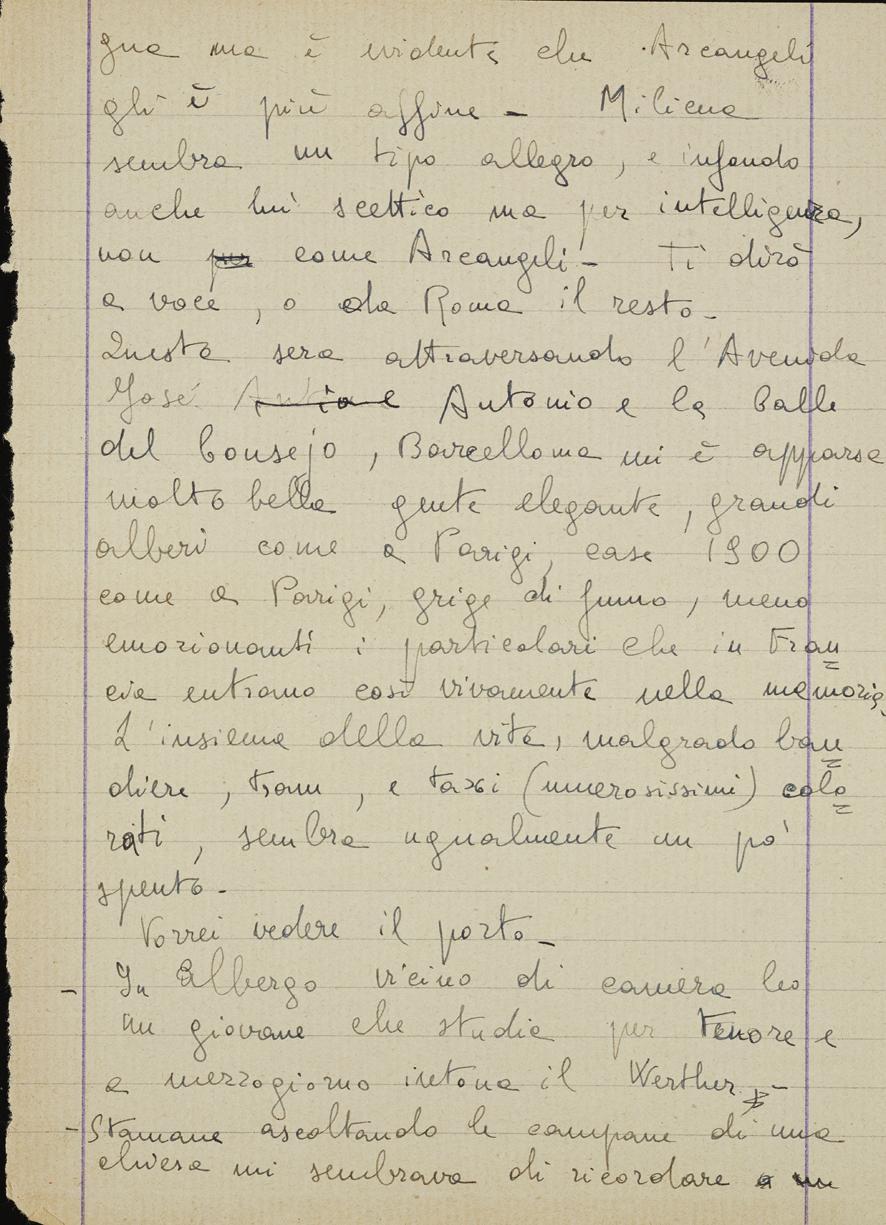 gna ma è evidente che Arcangeli
gli è più affine - Miliena
sembra un tipo allegro, e in fondo
anche lui scettico ma per intelligenza,
non per come Arcangeli - Ti dirò
a voce, o da Roma il resto -
Questa sera attraversando l'Avenida
José Antio e Antonio e la Calle
del Consejo, Barcellona mi è apparsa
molto bella gente elegante, grandi
alberi come a Parigi, case 1900
come a Parigi, grige di fumo, meno
emozionanti i particolari che in Fran
cia entrano così vivamente nella memoria.
L'insieme della vita, malgrado ban
diere, tram, e taxi (numerosissimi) colo
rati, sembra ugualmente un po'
spento -
Vorrei vedere il porto -
- In Albergo vicino di camera ho
un giovane che studia per tenore e
a mezzogiorno intona il Werther -
- Stamane ascoltando le campane di una
chiesa mi sembrava di ricordare a un